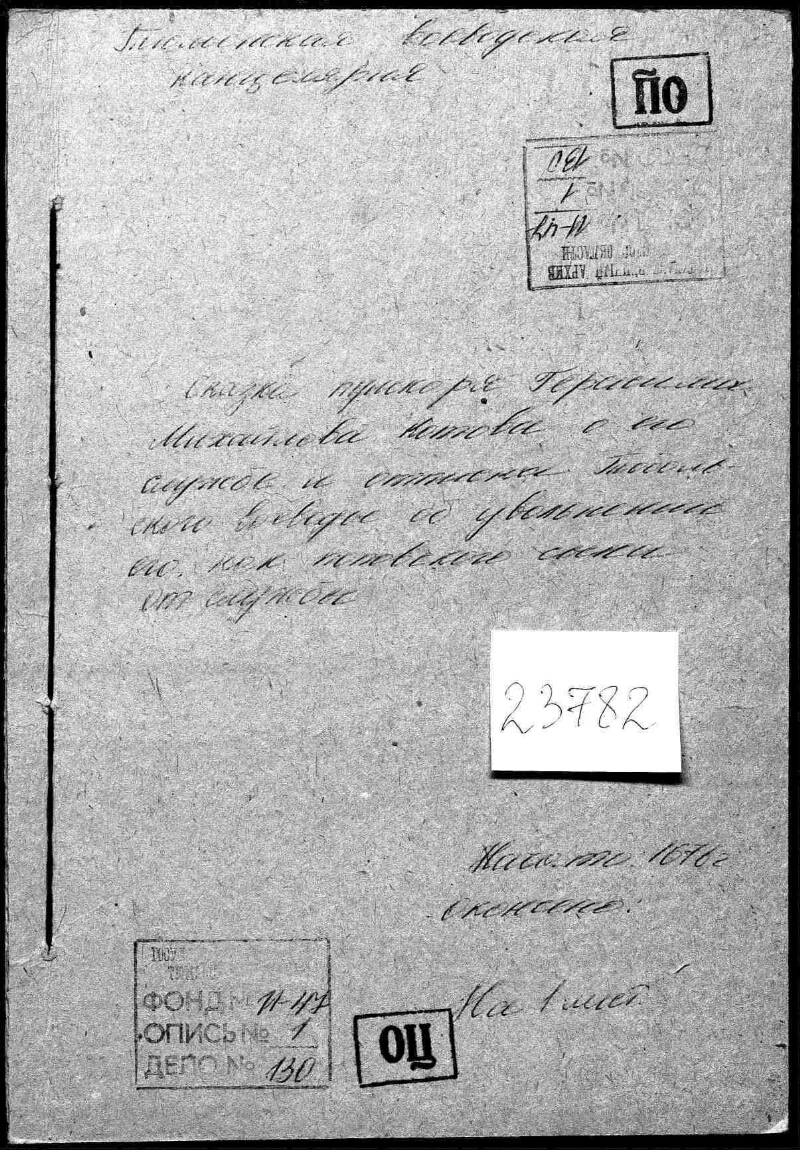 Тюменская воеводская
канцелярия
ОЦ
130
1
И-47
Сказка пушкаря Герасима
Михайлова Котова о его
службе и отписка Тоболь-
ского воеводы об увольнении
его, как поповского сына
от службы
23782
Начато: 1676 г
окончено:
На 1 лист.
ФОНД № И-47
ОПИСЬ № 1
ДЕЛО № 130
ОЦ